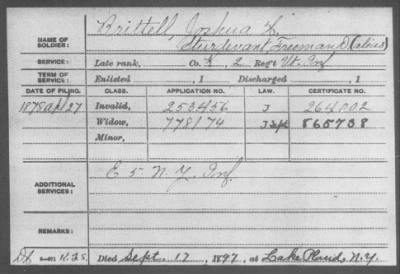 NAME OF SOLDIER: Brittell, Joshua K.
Sturdevant Freeman D (alias)
SERVICE: Late rank, Co. K, 2 Reg't Vt. Inf
TERM OF SERVICE: Enlisted , 1 Discharged , 1
DATE OF FILING. CLASS. APPLICATION NO. LAW. CERTIFICATE NO.
1878 Apl 27 Invalid, 253456 J 264002
Widow, 778174 565738
Minor,
ADDITIONAL SERVICES: E 5 N.Y. Inf.
REMARKS:
Died Sept. 17, 1897, at Lake Placid, N.Y.